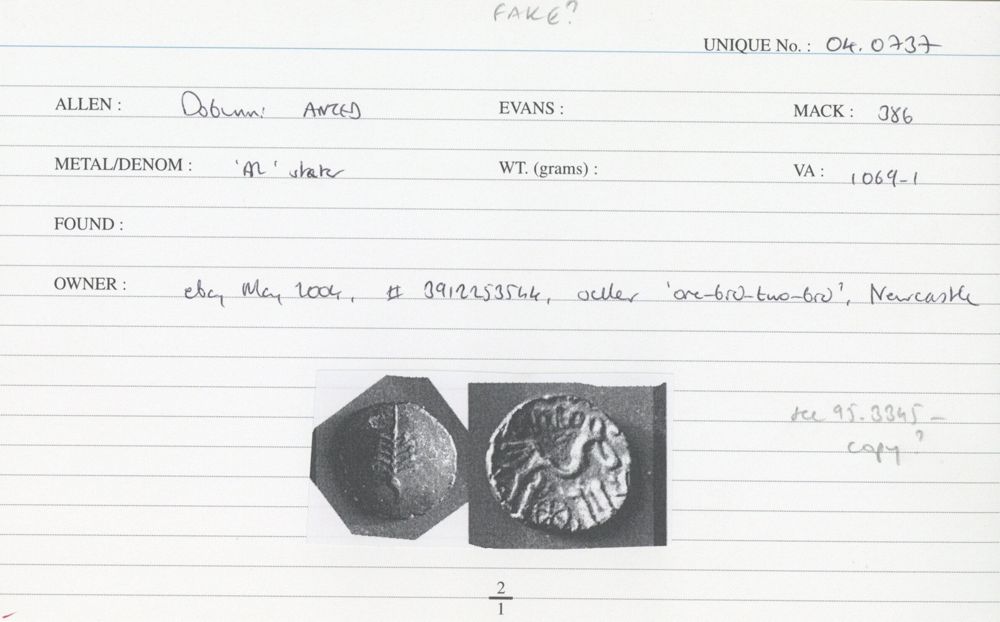 FAKE?
UNIQUE No. : 04.0737
ALLEN : Dobunni ANTED EVANS : MACK : 386
METAL/DENOM : 'AR' stater WT. (grams) : VA : 1069-1
FOUND :
OWNER : ebay May 2004, # 3912253544, seller 'one-bid-two-bid', Newcastle
see 95.3345 –
copy?
2
1